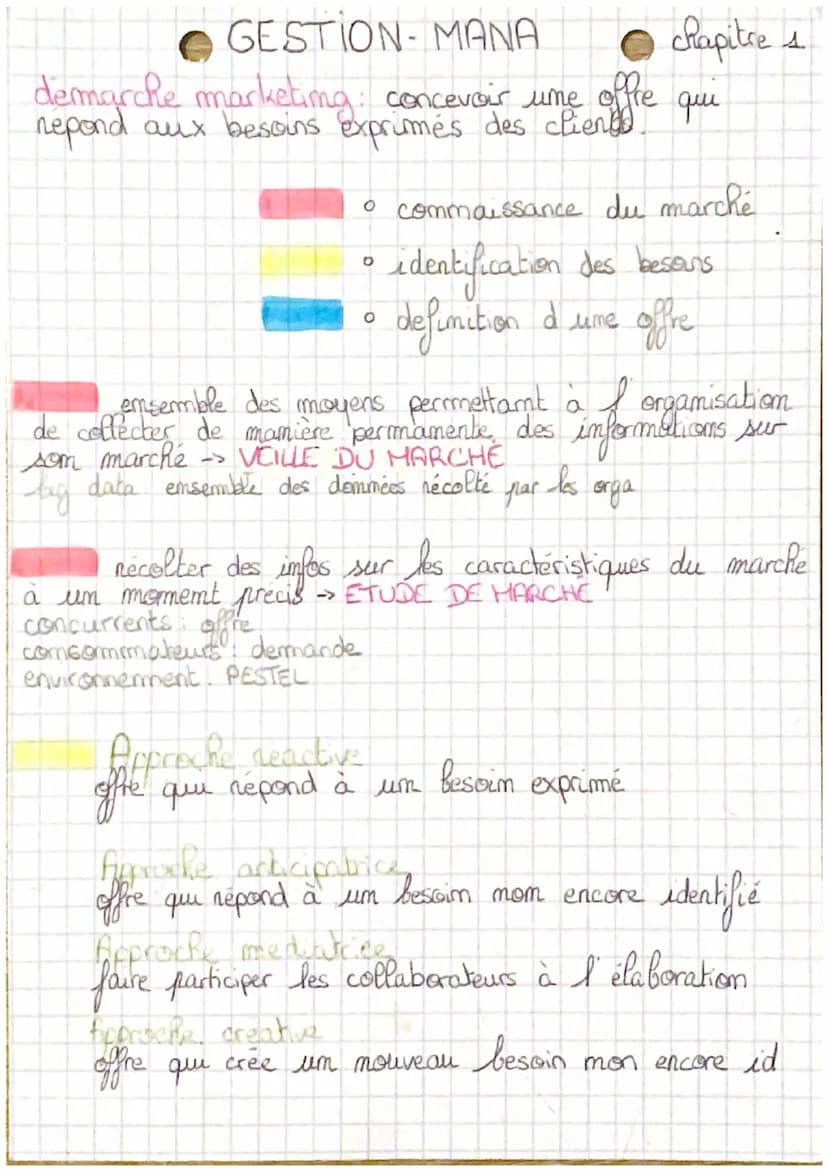 GESTION-MANA
chapitre 1
démarche marketing: concevoir une offre qui
répond aux besoins exprimés des clients.
connaissance du marché
identification des besoins
definition d une offre
ensemble des moyens permettant à l'organisation
de collecter de manière permanente des informations sur
son marché -> VEILLE DU MARCHÉ
big data ensemble des données récolté par les orga
récolter des infos sur les caractéristiques du marche
à un moment précis -> ETUDE DE MARCHÉ
concurrents: offre
consommateurs: demande
environnement. PESTEL
Approche reactive
offre qui répond à un besoin exprimé
Approche anticipatrice
offre qui répond à un besoin non encore identifié
Approche mediatrice
faire participer les collaborateurs à l'élaboration
Approche creative
offre qui crée un nouveau besoin non encore id